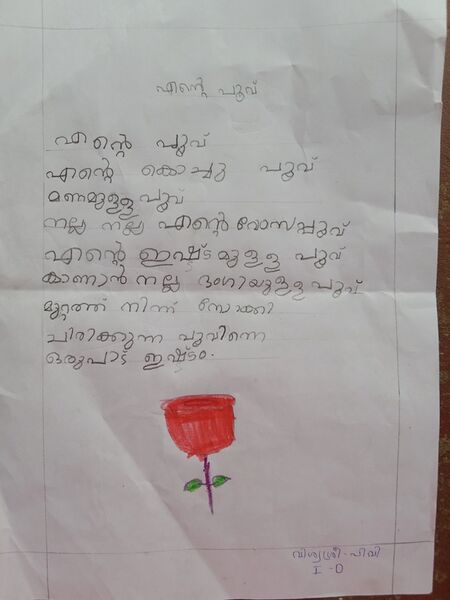 എന്റെ പൂവ്
എന്റെ പൂവ്
എന്റെ കൊച്ചു പൂവ്
മണമുള്ള പൂവ്
നല്ല നല്ല എന്റെ റോസപ്പൂവ്
എന്റെ ഇഷ്ടമുള്ള പൂവ്
കാണാൻ നല്ല ഭംഗിയുള്ള പൂവ്
മുറ്റത്ത് നിന്ന് നോക്കി
ചിരിക്കുന്ന പൂവിനെ
ഒരുപാട് ഇഷ്ടം.
വിശ്വശ്രീ. പിവി
I - D